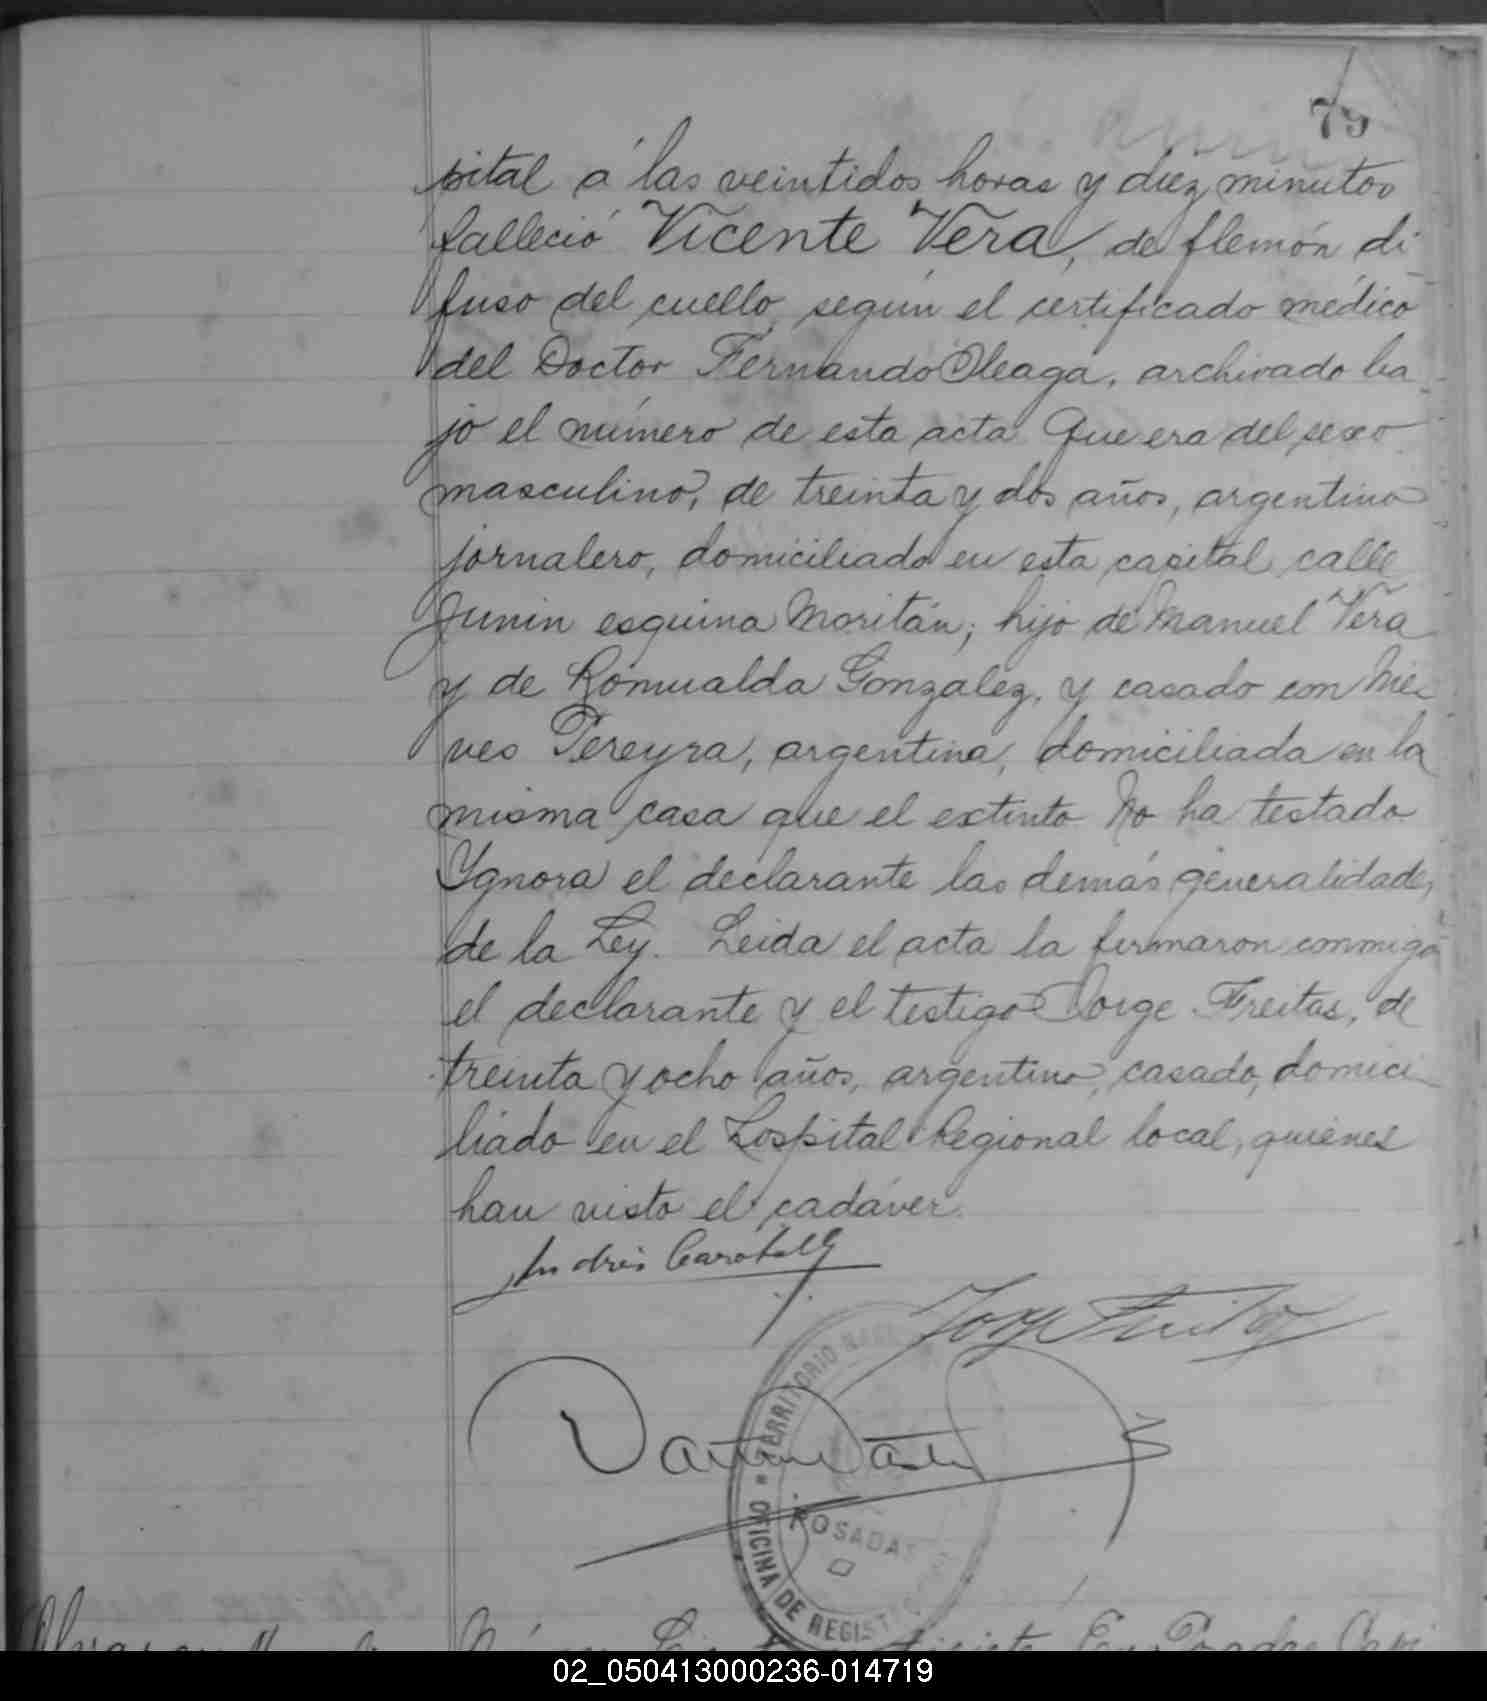 79
pital á las veintidos horas y diez minutos
falleció Vicente Vera, de flemón di
fuso del cuello, según el certificado médico
del Doctor Fernando Oleaga, archivado ba
jo el número de esta acta. Que era del sexo
masculino, de treinta y dos años, argentino
jornalero, domiciliado en esta capital calle
Junin esquina Moritán; hijo de Manuel Vera
y de Romualda Gonzalez, y casado con Nie
ves Pereyra, argentina, domiciliada en la
misma casa que el extinto. No ha testado.
Ygnora el declarante las demás generalidades
de la Ley. Leida el acta la firmaron conmigo
el declarante y el testigo Jorge Freitas, de
treinta y ocho años, argentino, casado, domici
liado en el Hospital Regional local, quienes
han visto el cadáver.
Andrés
Jorge Freitas
TERRITORIO NAC
POSADAS
OFICINA DE REGIST
En Posadas Capi
02_050413000236-014719